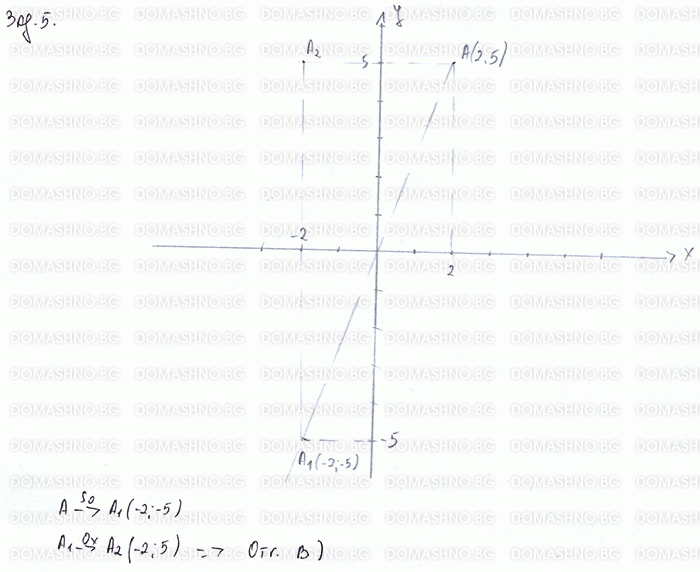 Зад. 5.
y
A₂
5
A(2;5)
-2
2
x
-5
A₁(-2;-5)
A —S₀→ A₁(-2;-5)
A₁ —Ox→ A₂(-2;5) => Отг. В)
DOMASHNO.BG